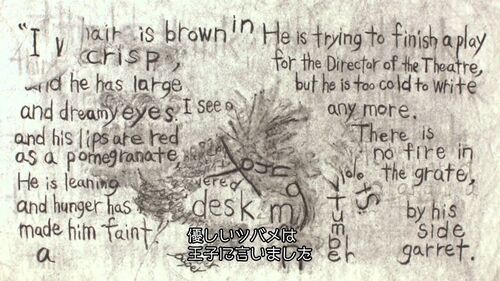 "I
hair is brown in
crisp,
and he has large
and dreamy eyes. I see a
and his lips are red
as a pomegranate,
He is leaning
and hunger has
made him faint.
a
He is trying to finish a play
for the Director of the Theatre,
but he is too cold to write
any more.
There is
no fire in
the grate,
by his
side
garret.
young
vered
desk
m
tumbler
優しいツバメは
王子に言いました